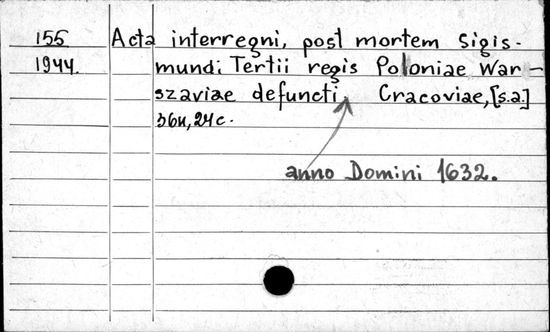 155 Acta interregni, post mortem Sigis-
1944. mundi Tertii regis Poloniae War-
szaviae defuncti, Cracoviae, [s.a.]
36u, 24c.
anno Domini 1632.